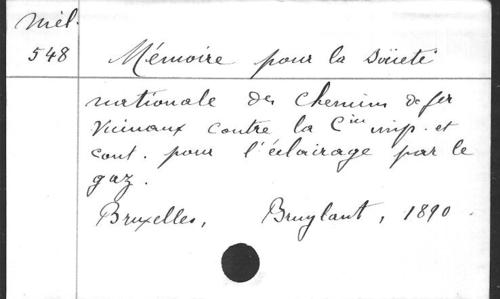 Mél.
548
Mémoire pour la Société
nationale des Chemins de fer
Vicinaux contre la Cie imp. et
cont. pour l'éclairage par le
gaz.
Bruxelles, Bruylant, 1890.